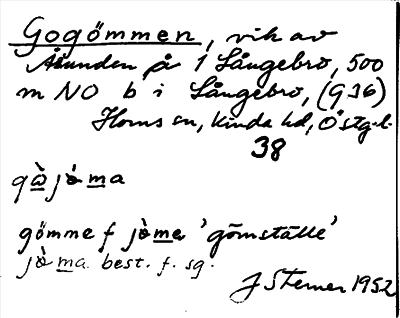 Gogömmen, vik av
Åsunden på 1 Långebro, 500
m NO b i Långebro, (936)
Horns sn, Kinda hd, Östg.l.
38
gömme f 'gömställe'
best. f. sg.
J Sterner 1952